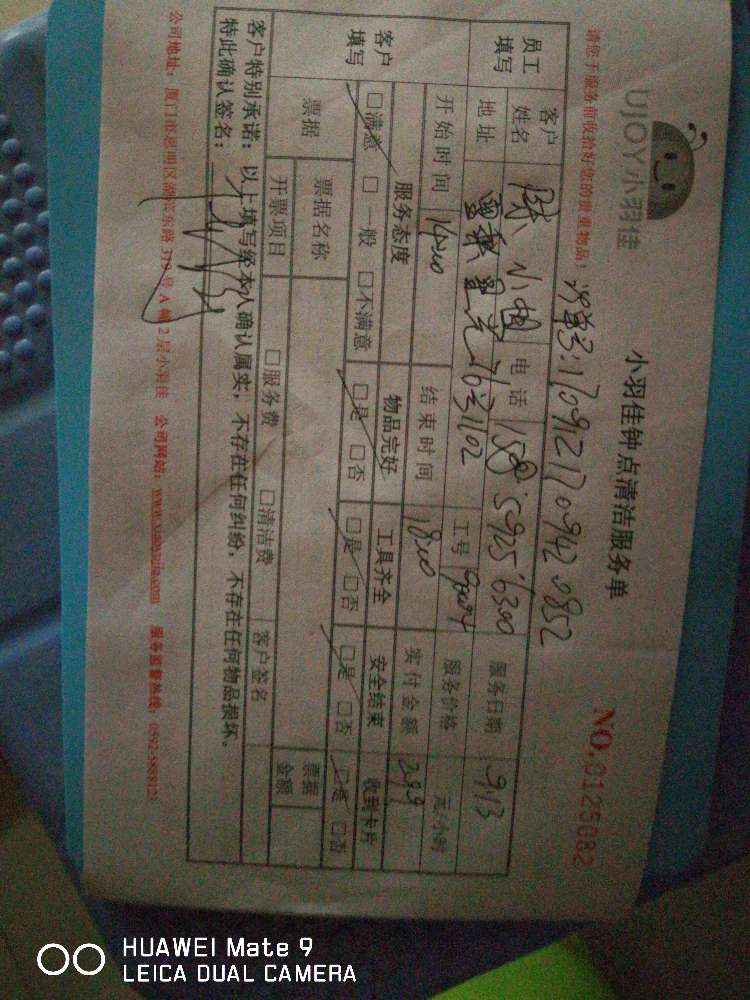 UJOY小羽佳
小羽佳钟点清洁服务单
NO.0125082
请您于服务前收拾好您的贵重物品!
订单号:170921709420852
员工填写 客户姓名 陈小姐 电话 158 5925 6300 服务日期 9.13
地址 星光76号1102 工号 服务价格 元/小时
开始时间 14:00 结束时间 18:00 实付金额 299
客户填写 服务态度 物品完好 工具齐全 安全结束 收到卡片
□满意 □一般 □不满意 □是 □否 □是 □否 □是 □否 □是 □否
票据 票据名称 □服务费 □清洁费 客户签名 票据金额
开票项目
客户特别承诺:以上填写经本人确认属实,不存在任何纠纷,不存在任何物品损坏。
特此确认签名:
公司地址:厦门市思明区湖滨东路319号A幢2层小羽佳 公司网站:www.xiaoyujia.com 服务监督热线:
HUAWEI Mate 9
LEICA DUAL CAMERA